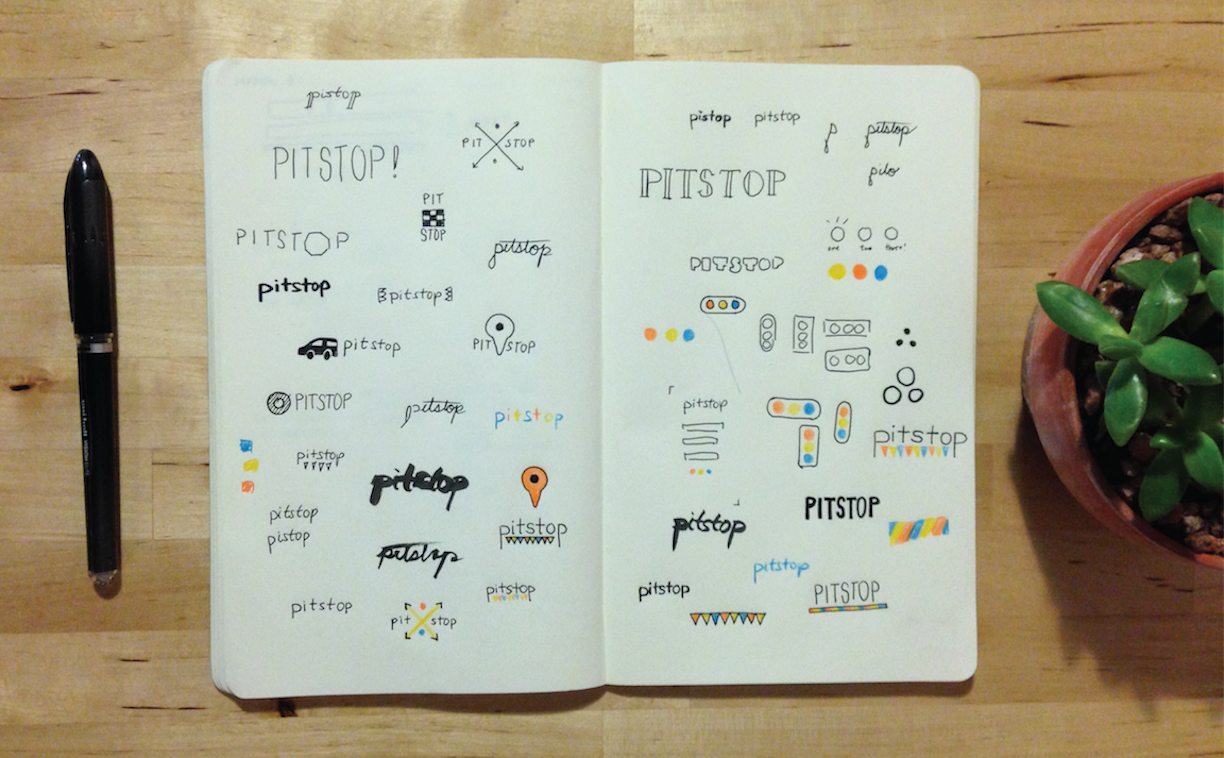 pistop
PIT STOP
PITSTOP!
PIT
STOP
PITSTOP
pitstop
pitstop
pitstop
PIT STOP
pitstop
PITSTOP
pitstop
pitstop
pitstop
pitstop
pitstop
pistop
pitstop
pitstop
pitstop
pitstop
pit stop
pistop pitstop
p pitstop
PITSTOP
one two three!
PITSTOP
pitstop
pitstop
PITSTOP
pitstop
pitstop
pitstop
PITSTOP